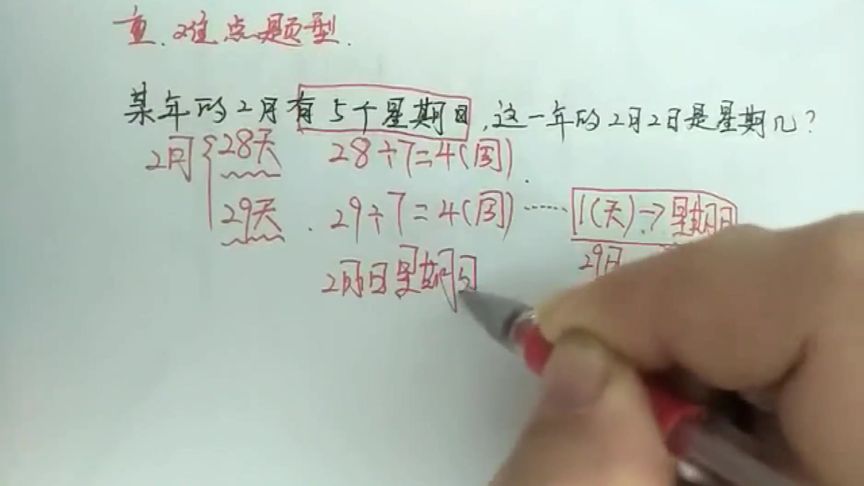 重、难点题型.
某年的2月有5个星期日,这一年的2月2日是星期几?
2月 28天 28÷7=4(周).
29天. 29÷7=4(周)……1(天)→星期日
2月1日星期日 29日